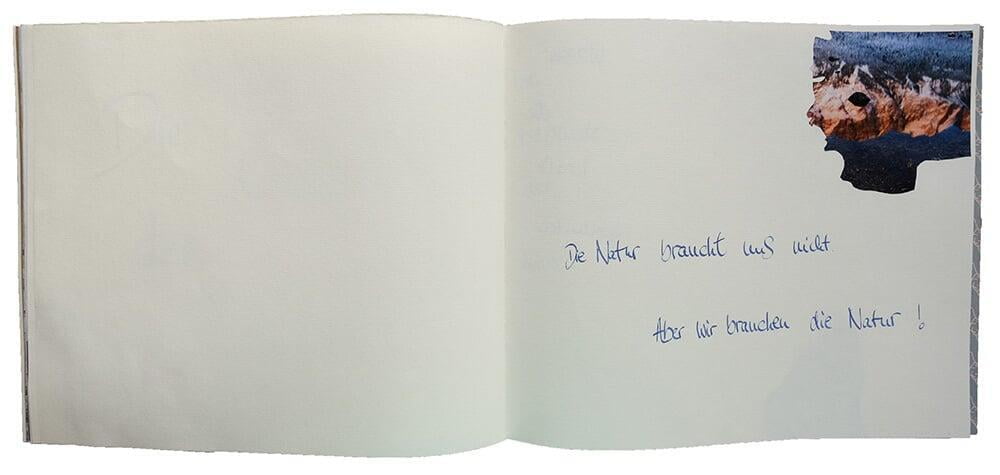 Die Natur braucht uns nicht.
Aber wir brauchen die Natur!